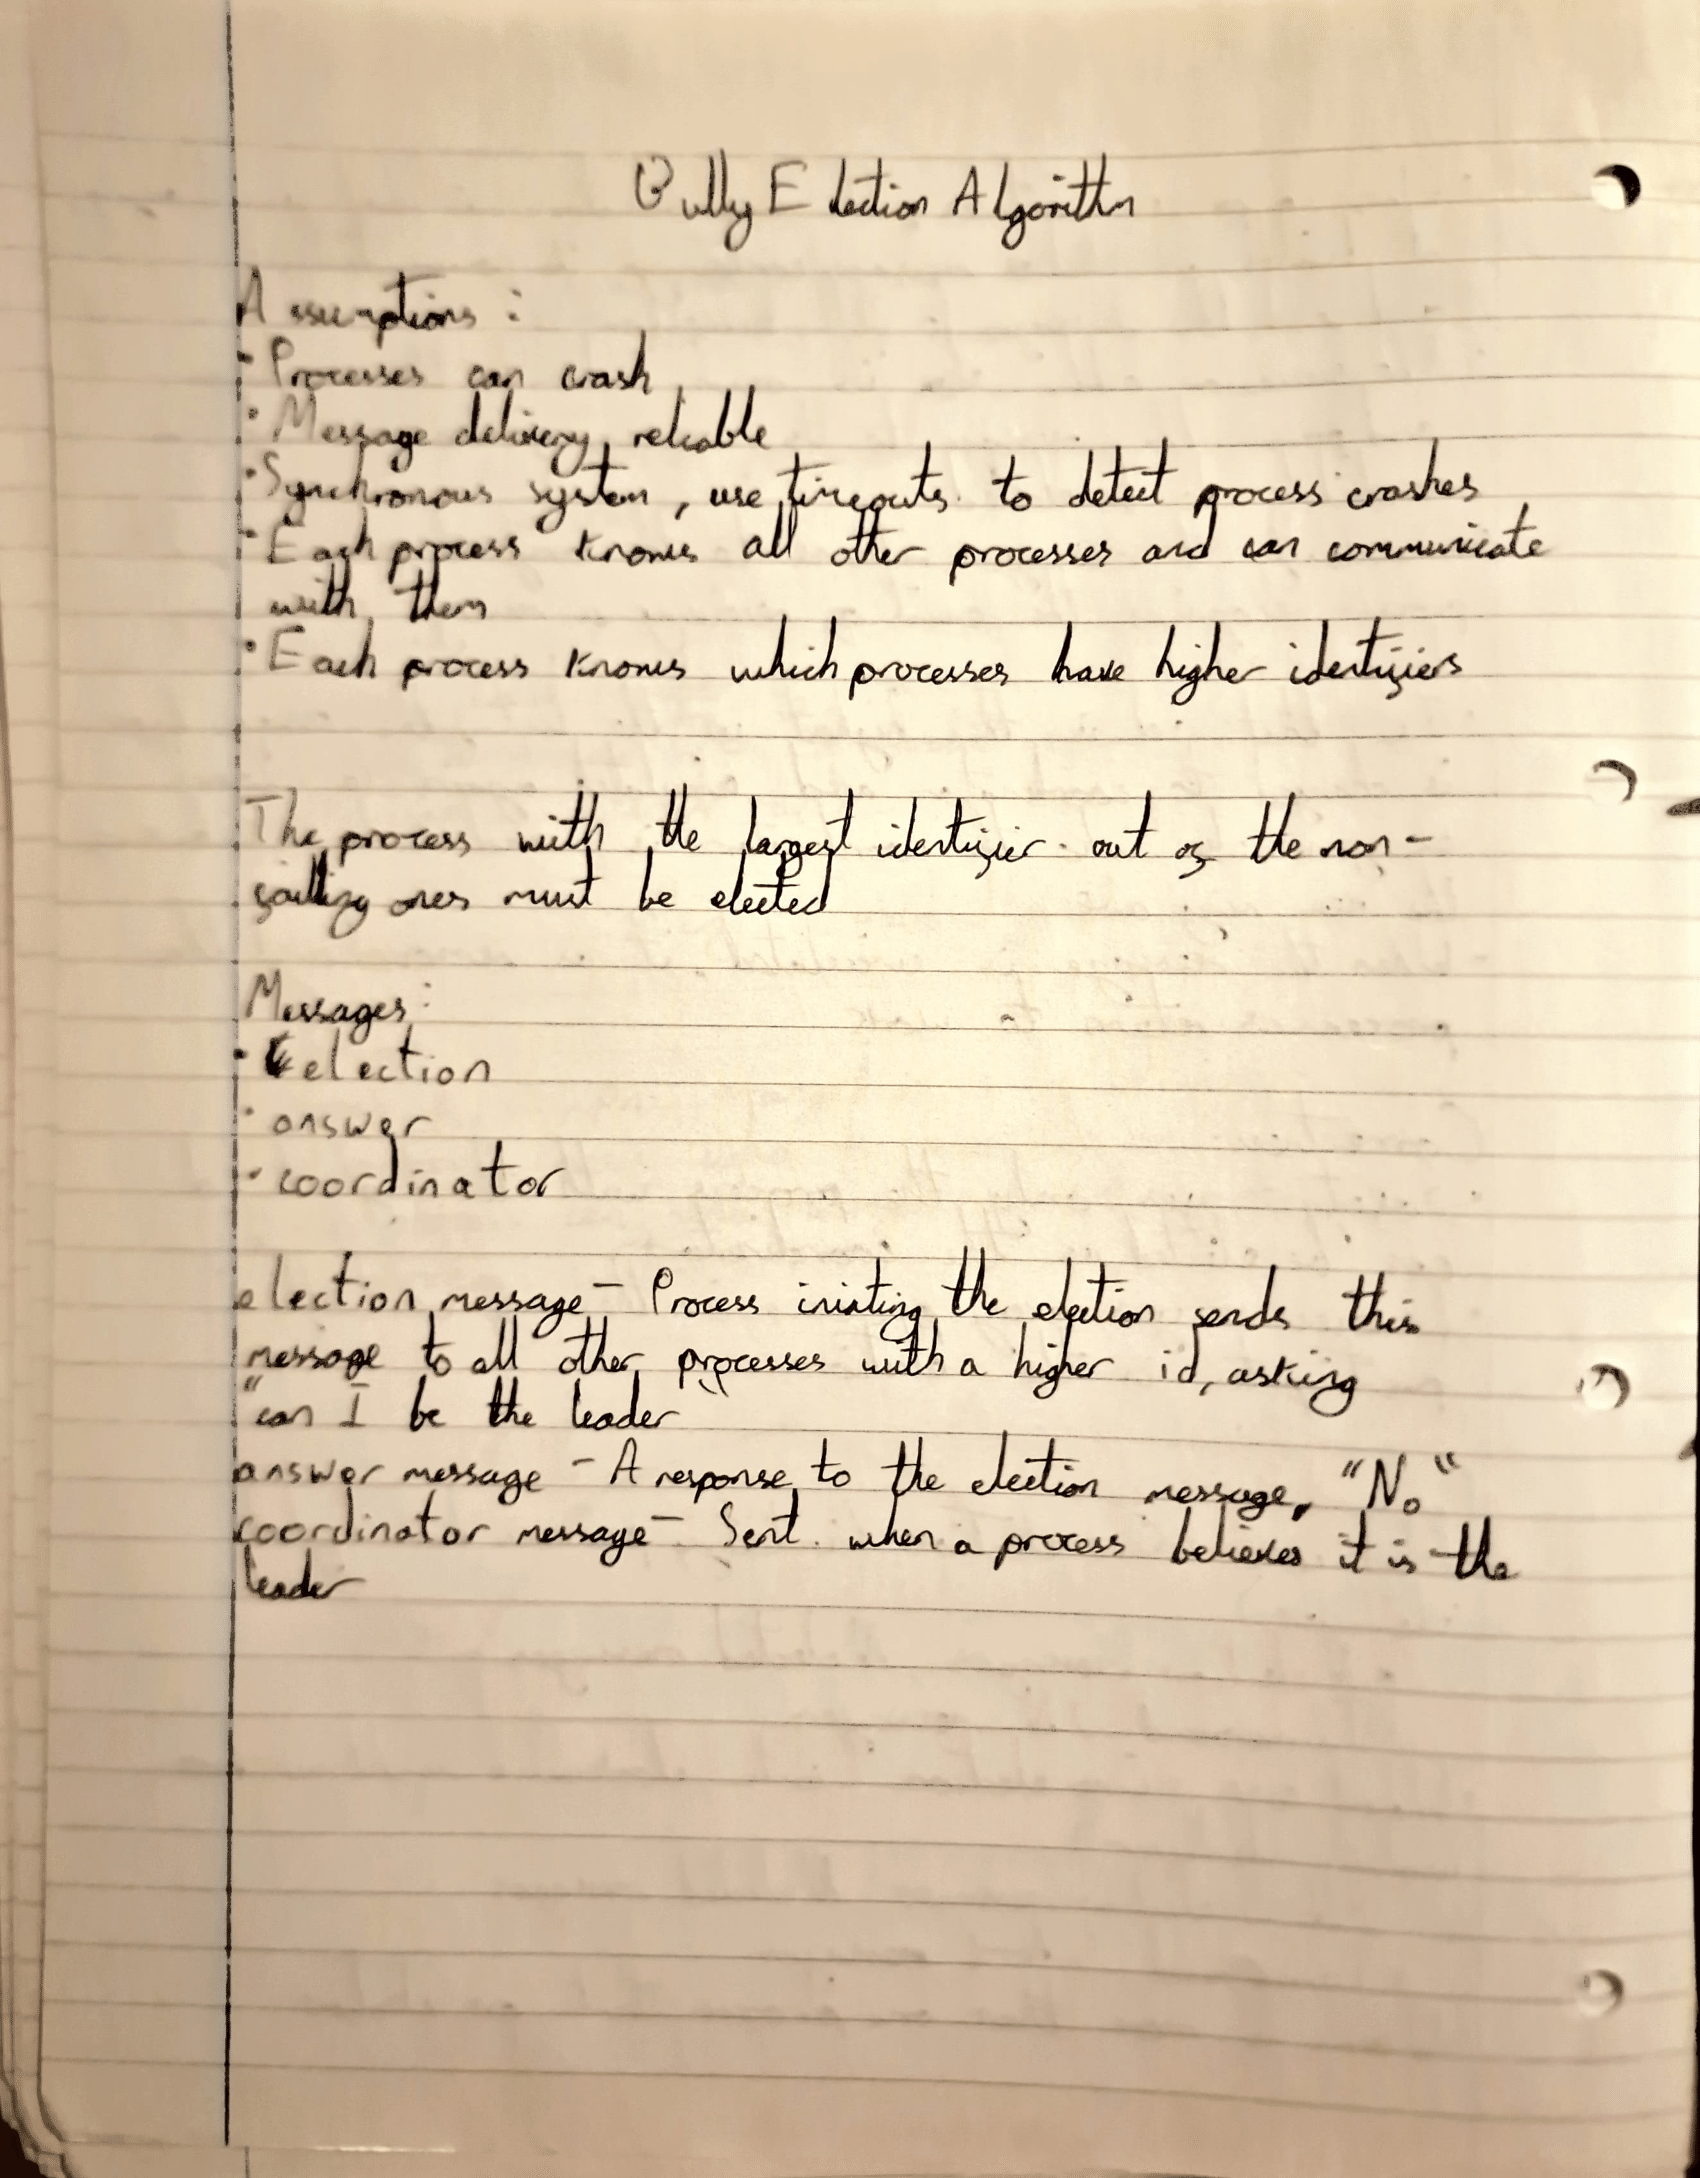 Bully Election Algorithm
Assumptions:
· Processes can crash
· Message delivery reliable
· Synchronous system, use timeouts to detect process crashes
· Each process knows all other processes and can communicate
with them
· Each process knows which processes have higher identifiers
The process with the largest identifier out of the non-
failing ones must be elected
Messages:
· election
· answer
· coordinator
election message - Process iniating the election sends this
message to all other processes with a higher id, asking
"can I be the leader"
answer message - A response to the election message, "No"
coordinator message - Sent when a process believes it is the
leader